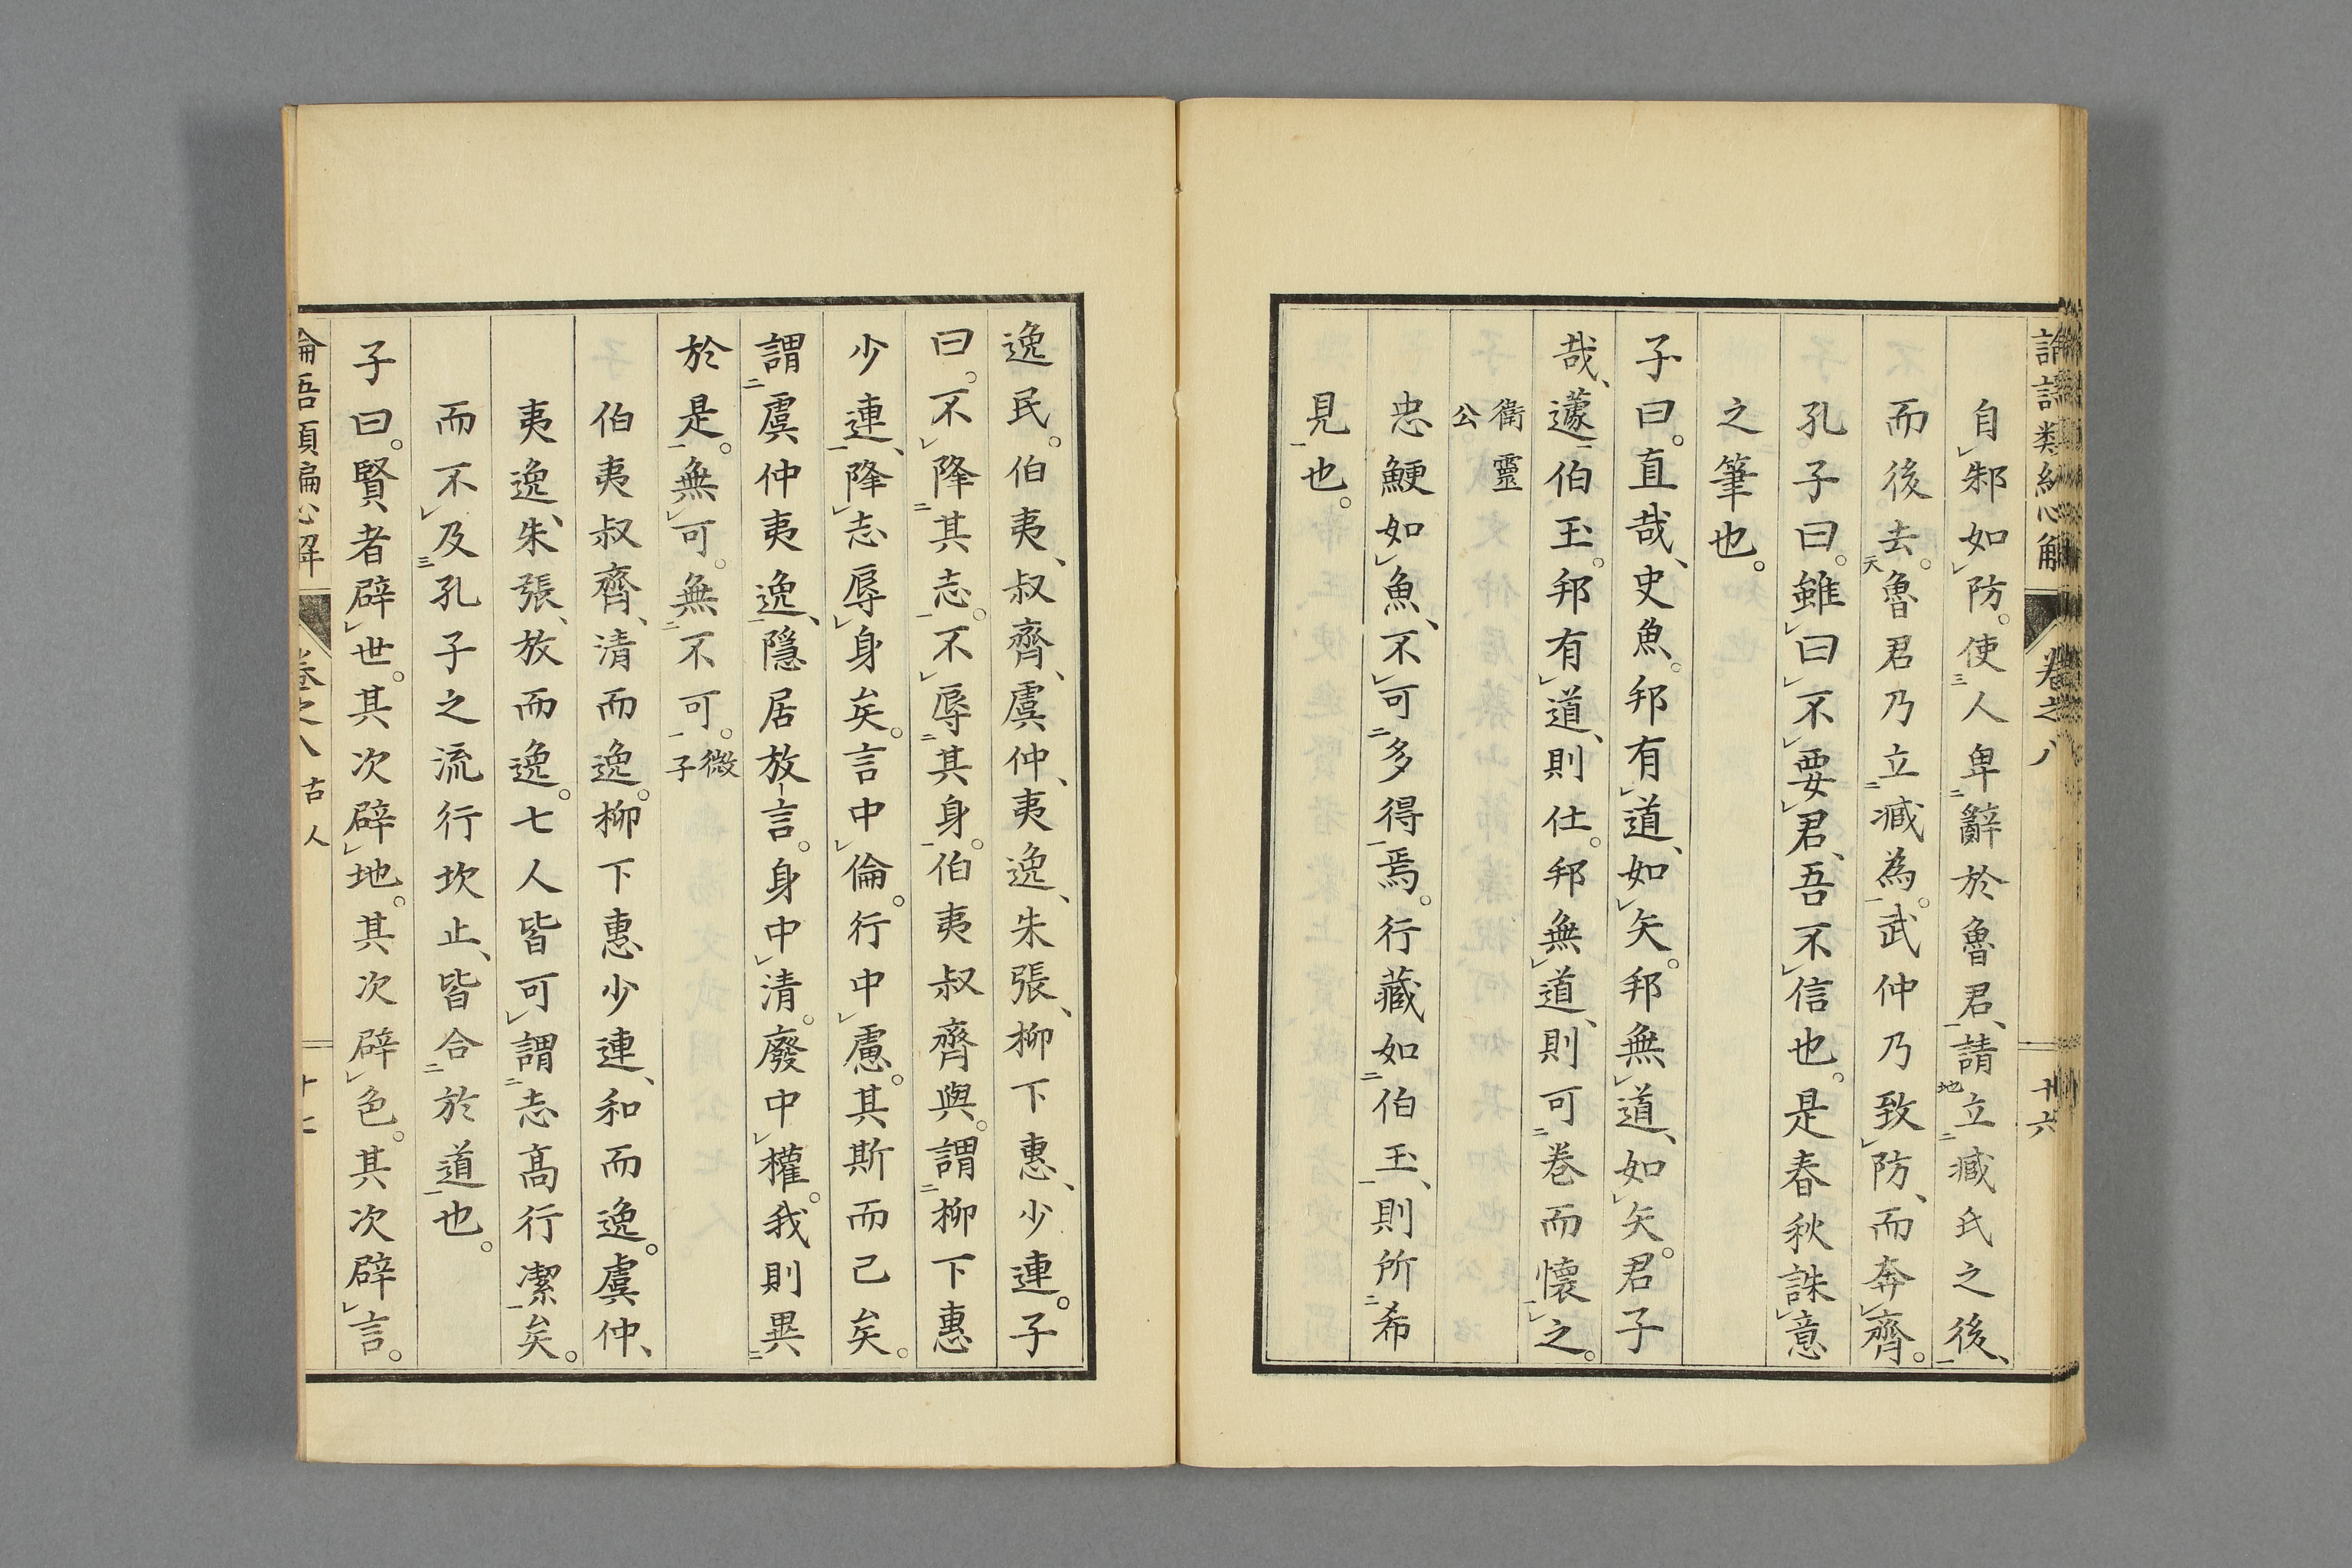 自邾如防。使人卑辭於魯君、請立臧氏之後、
而後去。魯君乃立臧為。武仲乃致防、而奔齊。
孔子曰。雖曰不要君、吾不信也。是春秋誅意
之筆也。
子曰。直哉、史魚。邦有道、如矢。邦無道、如矢。君子
哉、蘧伯玉。邦有道、則仕。邦無道、則可卷而懷之。
衛靈
公
忠鯁如魚、不可多得焉。行藏如伯玉、則所希
見也。
逸民。伯夷、叔齊、虞仲、夷逸、朱張、柳下惠、少連。子
曰。不降其志。不辱其身。伯夷叔齊與。謂柳下惠
少連、降志辱身矣。言中倫。行中慮。其斯而已矣。
謂虞仲夷逸、隱居放言。身中清。廢中權。我則異
於是。無可。無不可。微子
伯夷叔齊、清而逸。柳下惠少連、和而逸。虞仲、
夷逸、朱張、放而逸。七人皆可謂志高行潔矣。
而不及孔子之流行坎止、皆合於道也。
子曰。賢者辟世。其次辟地。其次辟色。其次辟言。
卷之八 古人